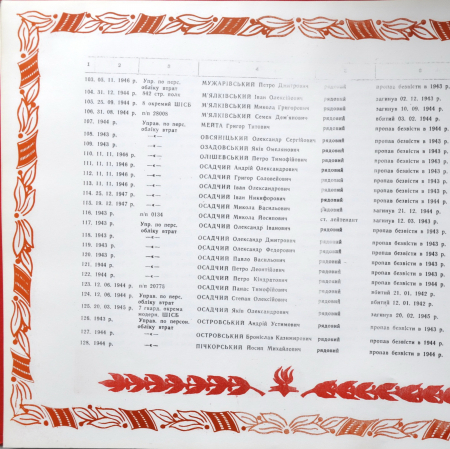 1 2 3 4 5 6
103. 03. 11. 1946 р. Упр. по перс. обліку втрат МУЖАРІВСЬКИЙ Петро Дмитрович рядовий пропав безвісти в 1943 р.
104. 31. 12. 1944 р. 502 стр. полк М'ЯЛКІВСЬКИЙ Іван Олексійович рядовий загинув 02. 12. 1943 р.
105. 25. 09. 1944 р. 5 окремий ШІСБ М'ЯЛКІВСЬКИЙ Микола Григорович рядовий загинув 10. 09. 1944 р.
106. 31. 08. 1944 р. п/п М'ЯЛКІВСЬКИЙ Семен Дем'янович рядовий вбитий 03. 02. 1944 р.
107. 1946 р. Управ. по перс. обліку втрат МЕЙТА Григор Титович рядовий пропав безвісти в 1944 р.
108. 1943 р. —«— ОВСЯНІЦЬКИЙ Олександр Сергійович рядовий пропав безвісти в 1943 р.
109. 1943 р. —«— ОЗАДОВСЬКИЙ Яків Омелянович рядовий пропав безвісти в 1943 р.
110. 11. 11. 1946 р. —«— ОЛІШЕВСЬКИЙ Петро Тимофійович рядовий пропав безвісти в 1944 р.
111. 11. 11. 1946 р. —«— ОСАДЧИЙ Андрій Олександрович рядовий пропав безвісти в 1944 р.
112. 11. 11. 1946 р. —«— ОСАДЧИЙ Григор рядовий пропав безвісти в 1944 р.
113. 11. 11. 1946 р. —«— ОСАДЧИЙ Іван Олександрович рядовий пропав безвісти в 1944 р.
114. 25. 12. 1947 р. —«— ОСАДЧИЙ Іван Никифорович рядовий пропав безвісти в 1944 р.
115. 18. 12. 1947 р. —«— ОСАДЧИЙ Микола Васильович рядовий загинув 21. 12. 1944 р.
116. 1943 р. п/п 0134 ОСАДЧИЙ Микола Йосипович ст. лейтенант загинув 12. 03. 1943 р.
117. 1943 р. Управ. по перс. обліку втрат ОСАДЧИЙ Олександр Іванович рядовий пропав безвісти в 1943 р.
118. 1943 р. —«— ОСАДЧИЙ Олександр Дмитрович рядовий пропав безвісти в 1943 р.
119. 1943 р. —«— ОСАДЧИЙ Олександр Федорович рядовий пропав безвісти в 1943 р.
120. 1943 р. —«— ОСАДЧИЙ Павло Васильович рядовий пропав безвісти в 1943 р.
121. 1944 р. —«— ОСАДЧИЙ Петро Леонтійович рядовий пропав безвісти в 1944 р.
122. 1944 р. —«— ОСАДЧИЙ Петро Кіндратович рядовий пропав безвісти в 1944 р.
123. 12. 06. 1944 р. п/п 20775 ОСАДЧИЙ Тимофійович рядовий вбитий 21. 01. 1942 р.
124. 12. 06. 1944 р. Управ. по перс. обліку втрат ОСАДЧИЙ Степан Олексійович рядовий вбитий 12. 01. 1942 р.
125. 20. 03. 1945 р. 7 гвард. окрема ШІСБ ОСАДЧИЙ Яків Олександрович рядовий загинув 20. 02. 1945 р.
126. 1943 р. Управ. по персон. обліку втрат ОСТРОВСЬКИЙ Андрій Устимович рядовий пропав безвісти в 1943 р.
127. 1944 р. —«— ОСТРОВСЬКИЙ Броніслав Казимирович рядовий пропав безвісти в 1944 р.
128. 1944 р. —«— ПІЧКОРСЬКИЙ Йосип Михайлович рядовий пропав безвісти в 1944 р.